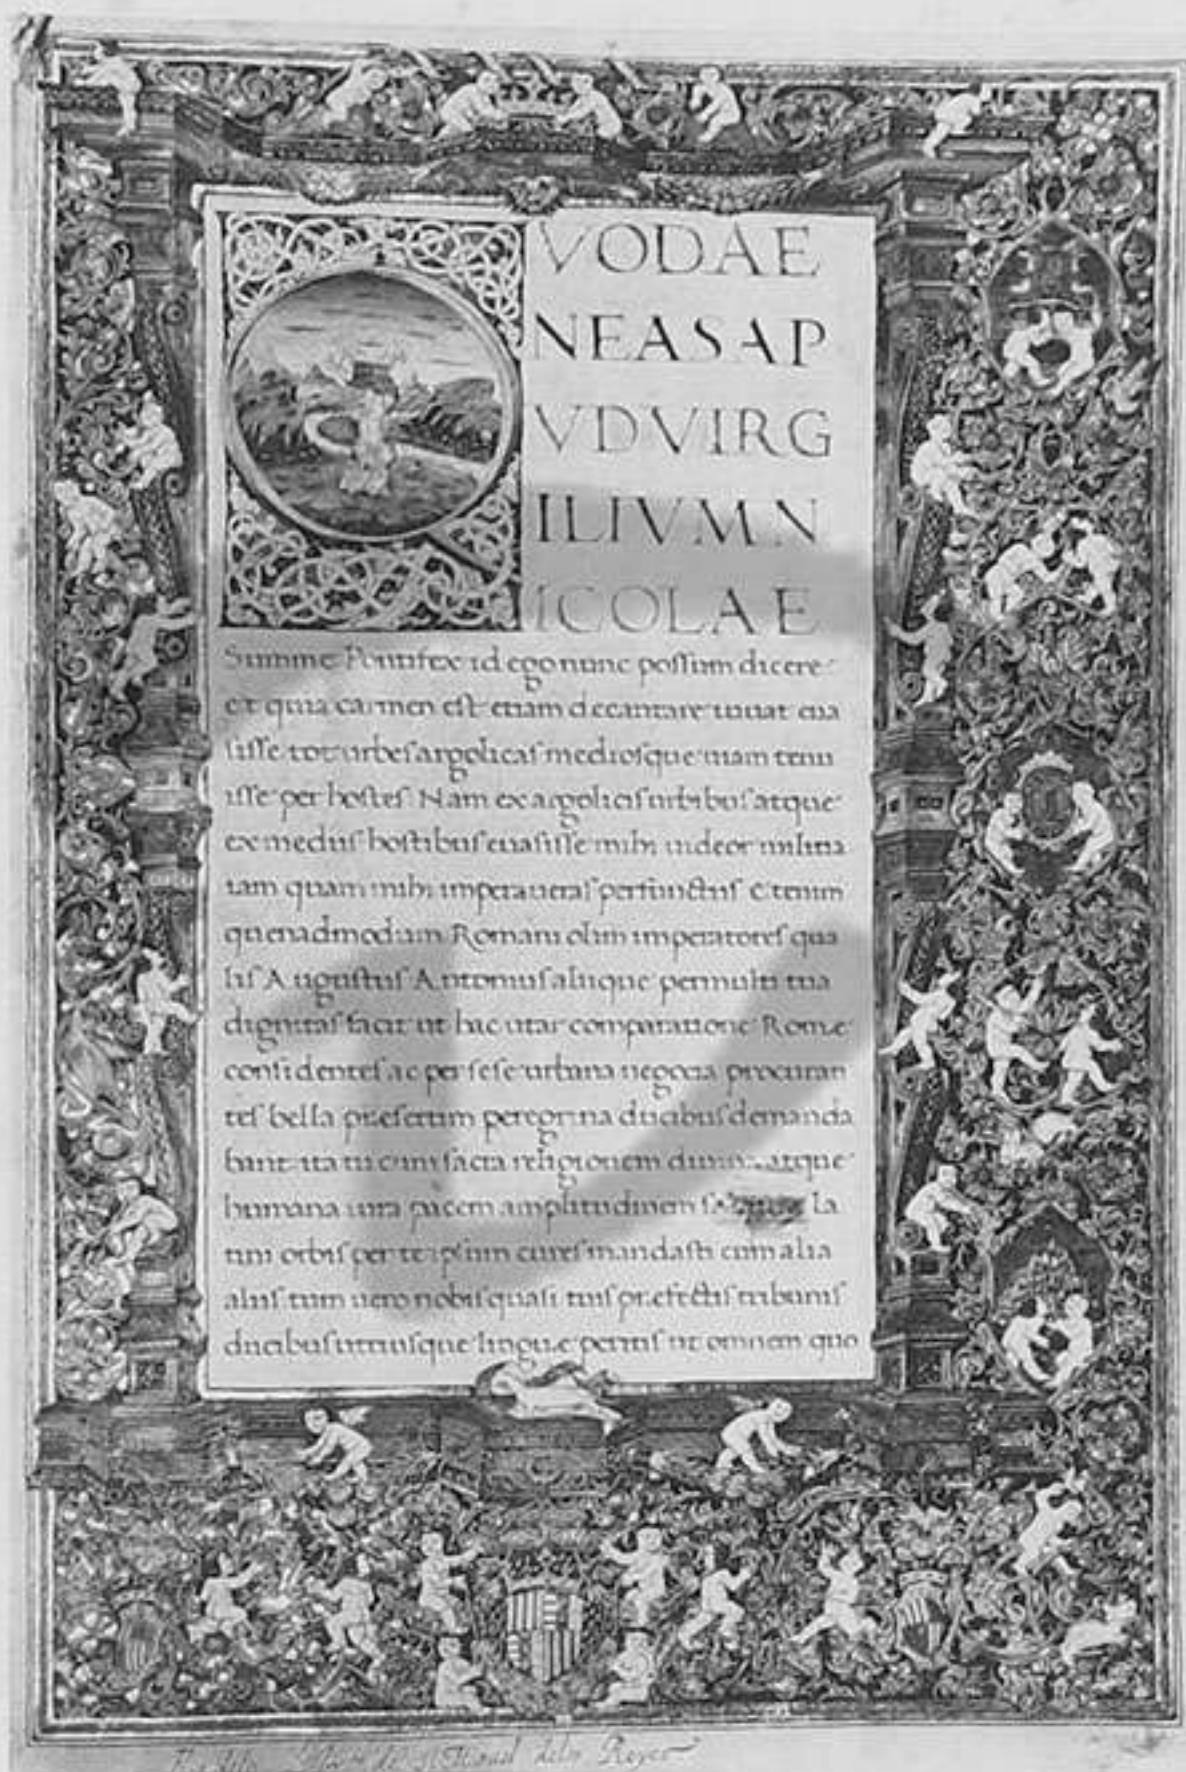 QVODAE
NEASAP
VDVIRG
ILIVMN
ICOLAE
Summe Pontifex id ego nunc possum dicere
et quia carmen est etiam decantare iuuat eua
sisse tot urbes argolicas mediosque uiam tenu
isse per hostes. Nam ex argolicis urbibus atque
ex mediis hostibus euasisse mihi uideor militia
iam quam mihi imperaueras perfunctus Etenim
quenadmodum Romani olim imperatores qua
lis Augustus Antonius aliique permulti tua
dignitas facit ut hac utar comparatione Romæ
considentes ac per sese urbana negocia procuran
tes bella præsertim peregrina ducibus demanda
bant ita tu cum sacra religionem diuina atque
humana iura pacem amplitudinem la
tini orbis per te ipsum cures mandasti cum alia
aliis tum uero nobis quasi tuis præfectis tribunis
ducibus utriusque linguæ peritis ut omnem quo
de S. Miguel delos Reyes